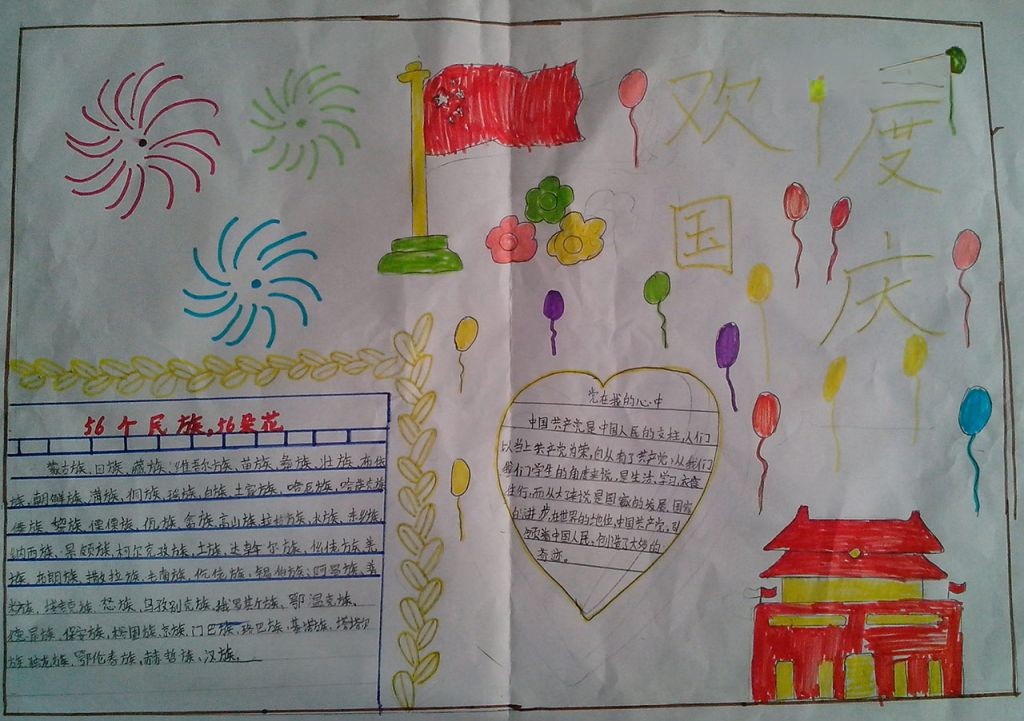 欢度
国庆
56个民族,56朵花
蒙古族、回族、藏族、维吾尔族、苗族、彝族、壮族、布依
族、朝鲜族、满族、侗族、瑶族、白族、土家族、哈尼族、哈萨克族
傣族、黎族、傈僳族、佤族、畲族、高山族、拉祜族、水族、东乡族、
纳西族、景颇族、柯尔克孜族、土族、达斡尔族、仫佬族、羌
族、布朗族、撒拉族、毛南族、仡佬族、锡伯族、阿昌族、普
米族、塔吉克族、怒族、乌孜别克族、俄罗斯族、鄂温克族、
德昂族、保安族、裕固族、京族、门巴族、珞巴族、基诺族、塔塔尔
族、独龙族、鄂伦春族、赫哲族、汉族。
党在我的心中
中国共产党是中国人民的支柱,人们
以当上共产党为荣,自从有了共产党,从我们
们学生的角度来说,是生活、学习、
行,而从大体说是国家的发展、国家
的进步,在世界的地位,中国共产党,
领着中国人民,创造了大的
奇迹。